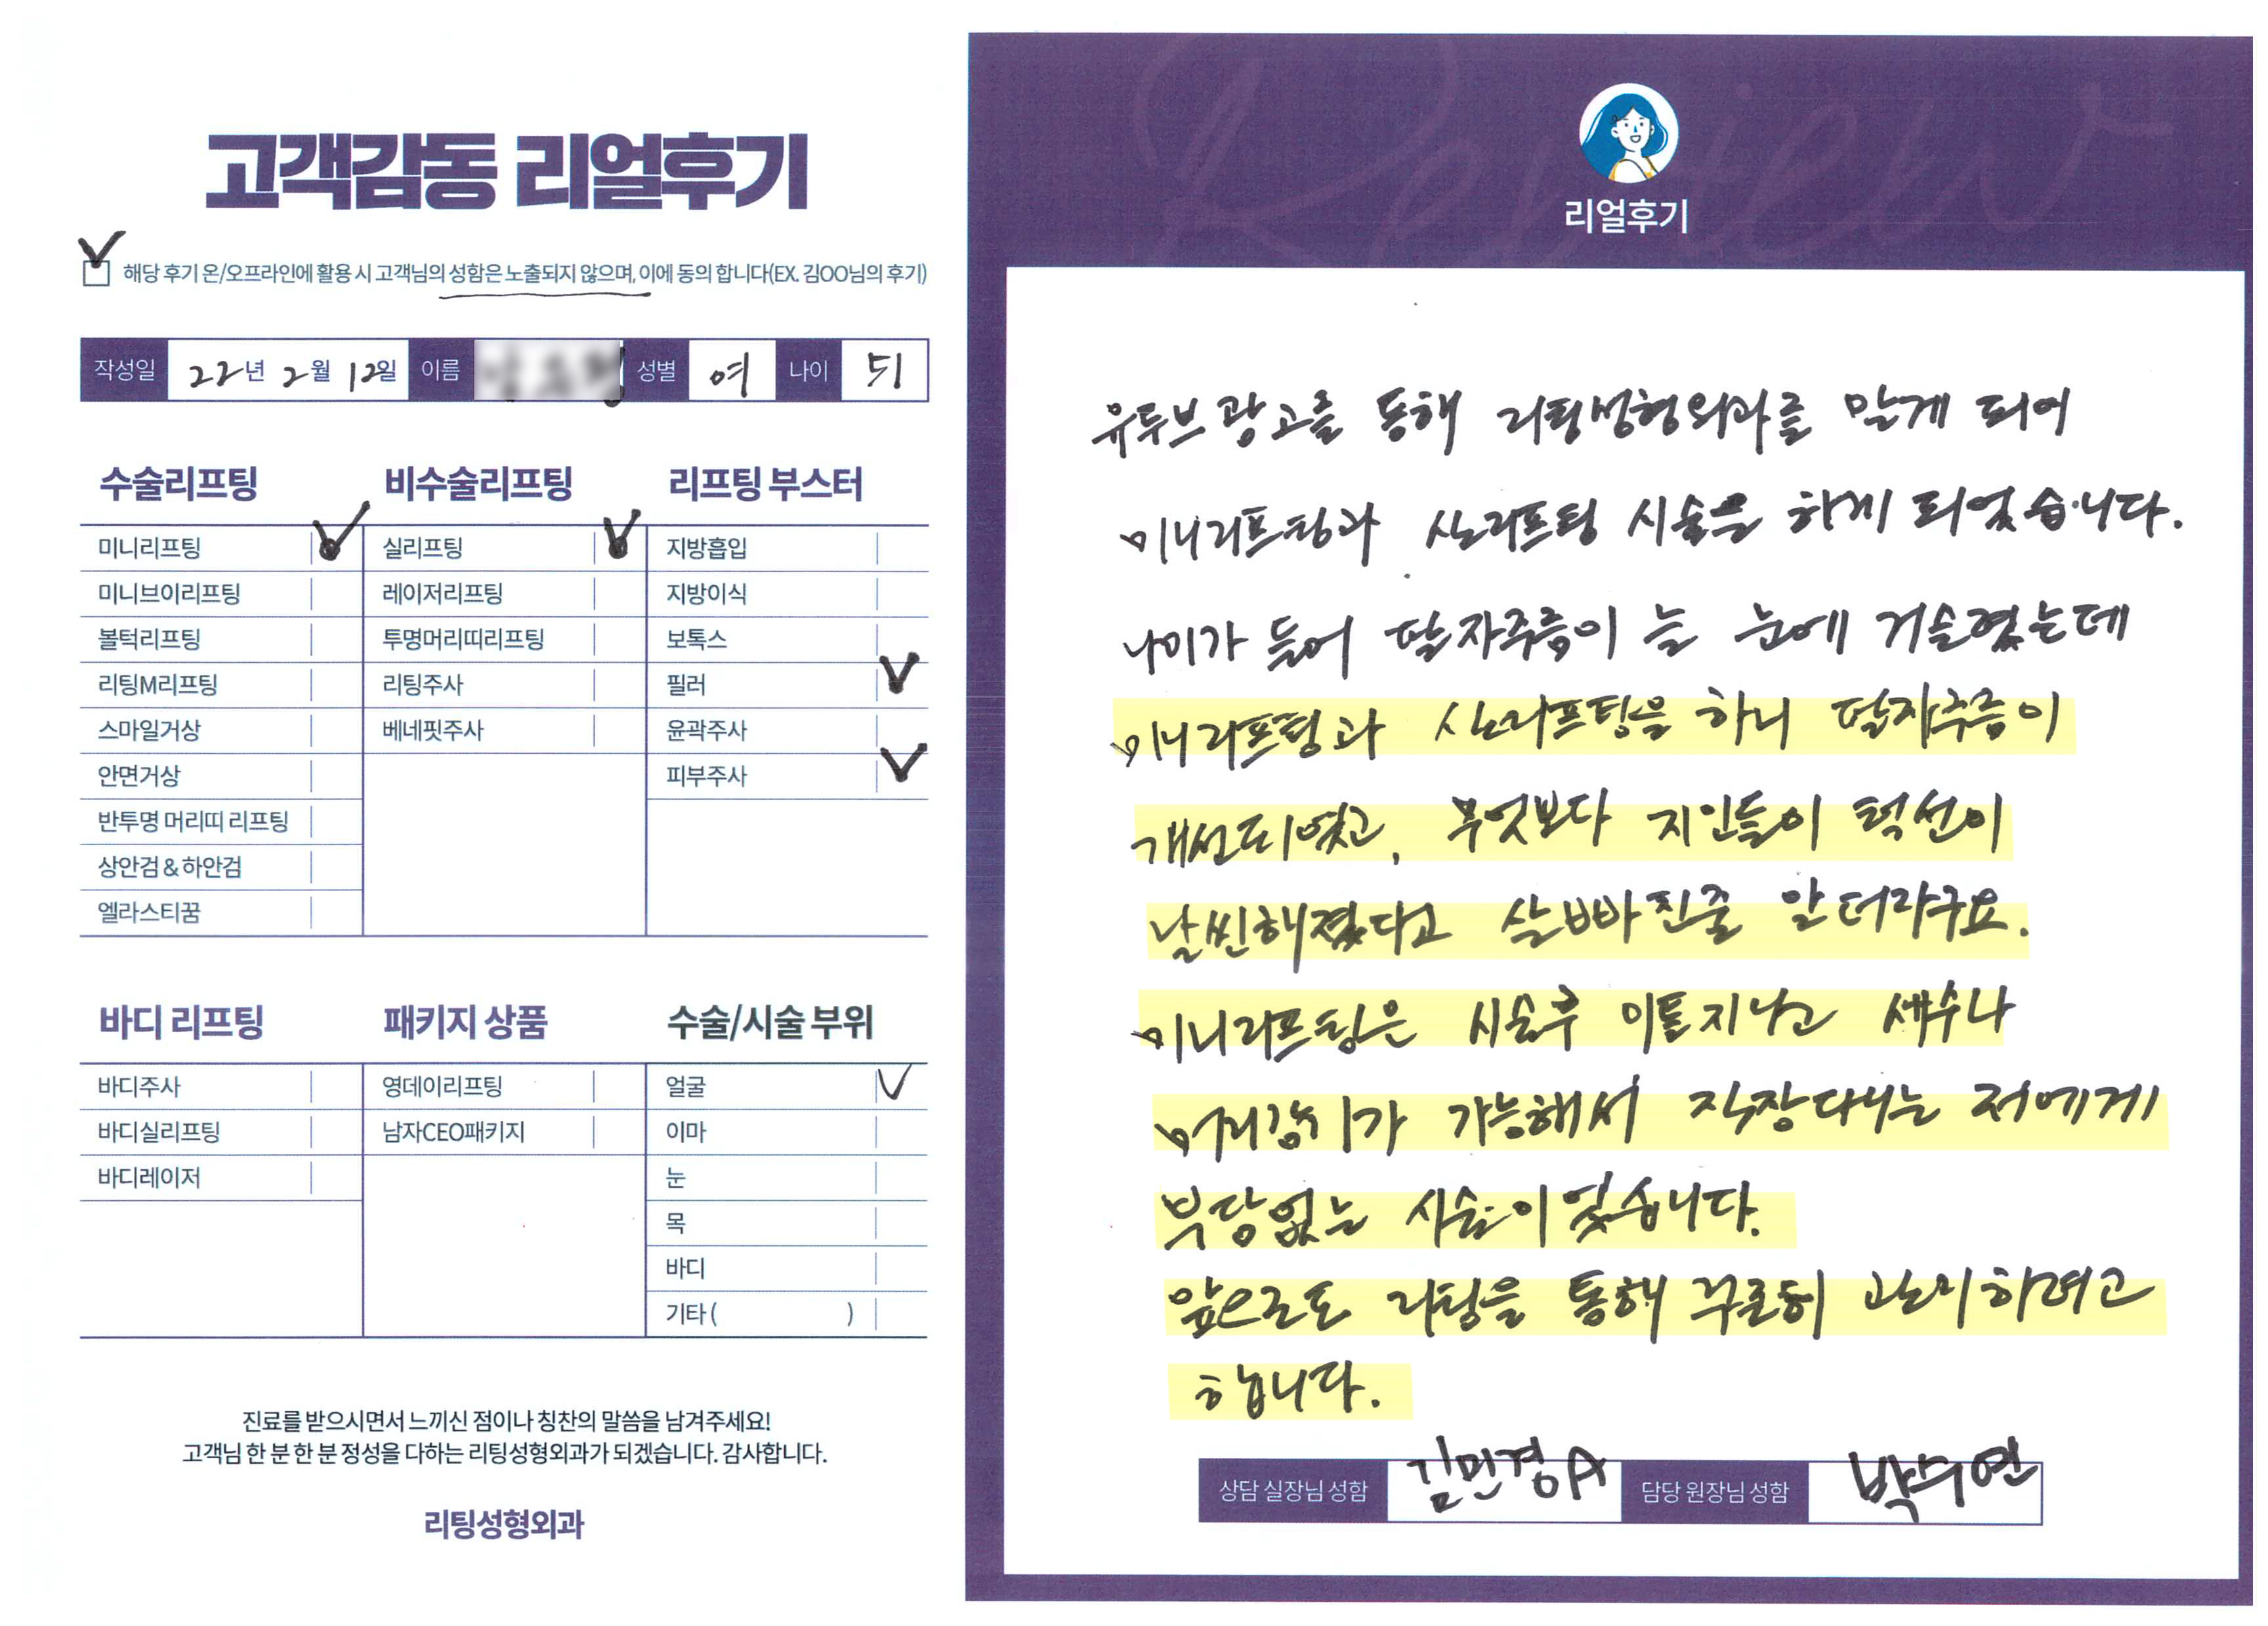 고객감동 리얼후기
해당 후기 온/오프라인에 활용 시 고객님의 성함은 노출되지 않으며, 이에 동의 합니다(EX. 김OO님의 후기)
작성일 22년 2월 12일 이름 성별 여 나이 51
수술리프팅
미니리프팅
미니브이리프팅
볼턱리프팅
리팅M리프팅
스마일거상
안면거상
반투명 머리띠 리프팅
상안검 & 하안검
엘라스티꿈
비수술리프팅
실리프팅
레이저리프팅
투명머리띠리프팅
리팅주사
베네핏주사
리프팅 부스터
지방흡입
지방이식
보톡스
필러
윤곽주사
피부주사
바디 리프팅
바디주사
바디실리프팅
바디레이저
패키지 상품
영데이리프팅
남자CEO패키지
수술/시술 부위
얼굴
이마
눈
목
바디
기타 ( )
진료를 받으시면서 느끼신 점이나 칭찬의 말씀을 남겨주세요!
고객님 한 분 한 분 정성을 다하는 리팅성형외과가 되겠습니다. 감사합니다.
리팅성형외과
Review
리얼후기
유투브 광고를 통해 리팅성형외과를 알게 되어
미니리프팅과 실리프팅 시술을 하게 되었습니다.
나이가 들어 팔자주름이 늘 눈에 거슬렸는데
미니리프팅과 실리프팅을 하니 팔자주름이
개선되었고, 무엇보다 지인들이 턱선이
날씬해졌다고 살빠진줄 알더라구요.
미니리프팅은 시술후 이틀지나고 세수나
머리감기가 가능해서 직장다니는 저에게
부담없는 시술이었습니다.
앞으로도 리팅을 통해 꾸준히 관리하려고
합니다.
상담 실장님 성함 김민경A 담당 원장님 성함 박수연